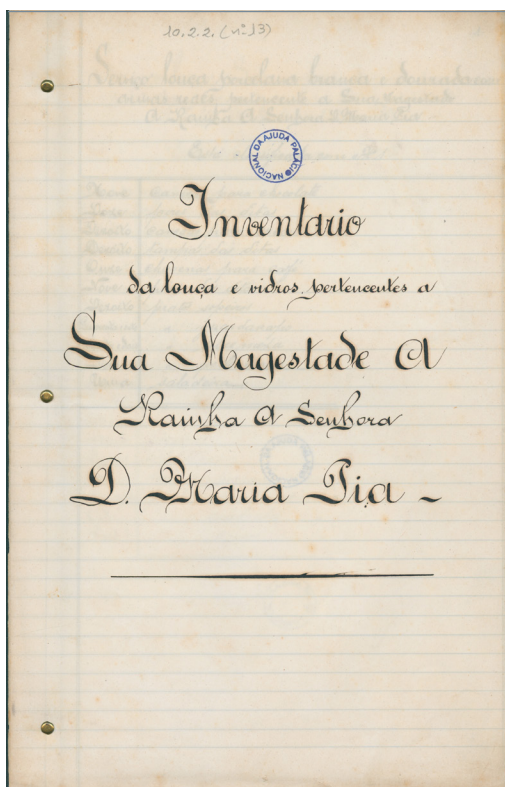 10.2.2. (nº 13)
PALÁCIO NACIONAL DA AJUDA
Inventario
da louça e vidros, pertencentes a
Sua Magestade A
Rainha A Senhora
D. Maria Pia -